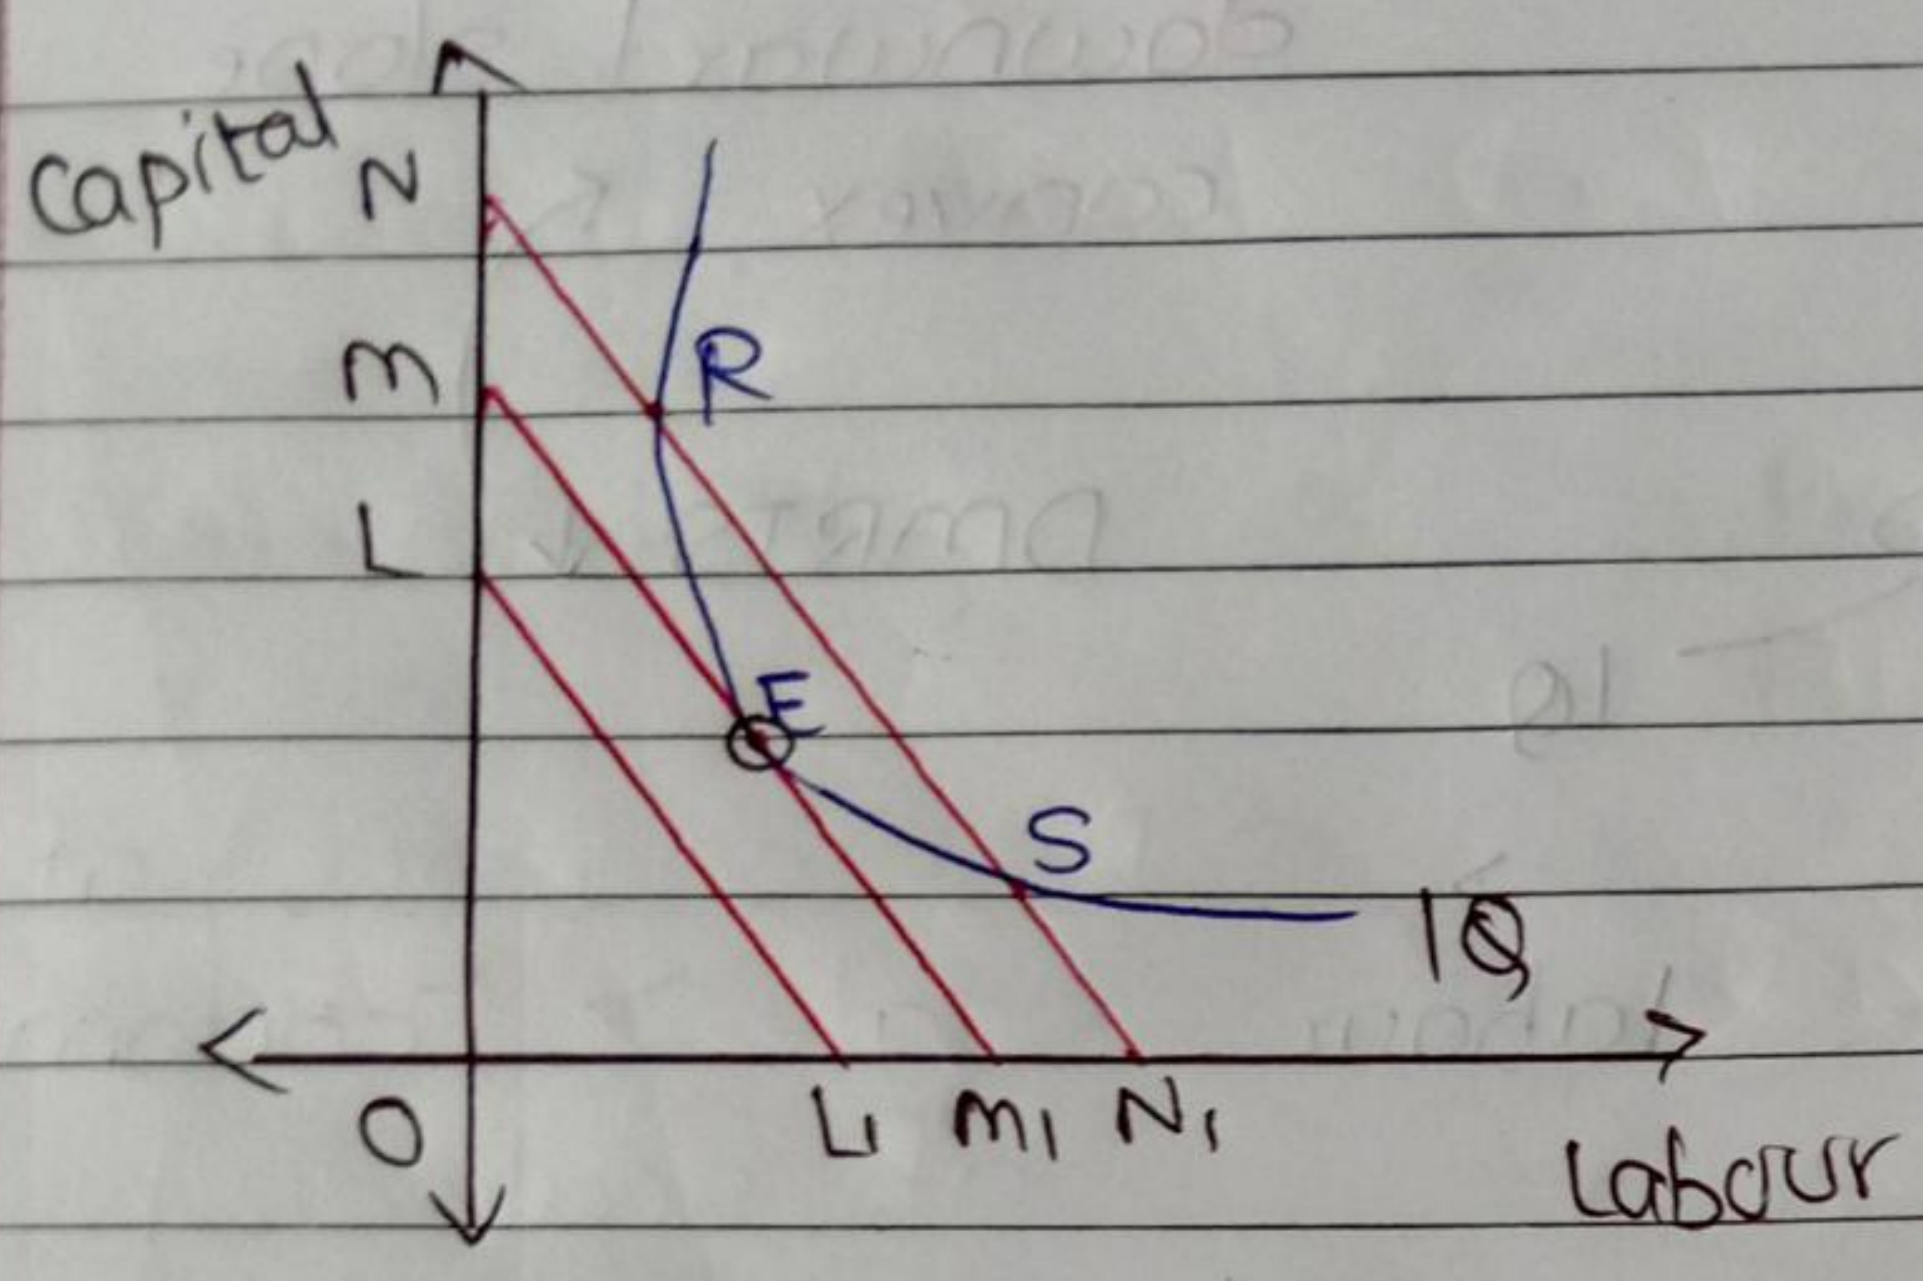 Capital
N
R
M
L
E
S
IQ
O
L1
M1
N1
Labour